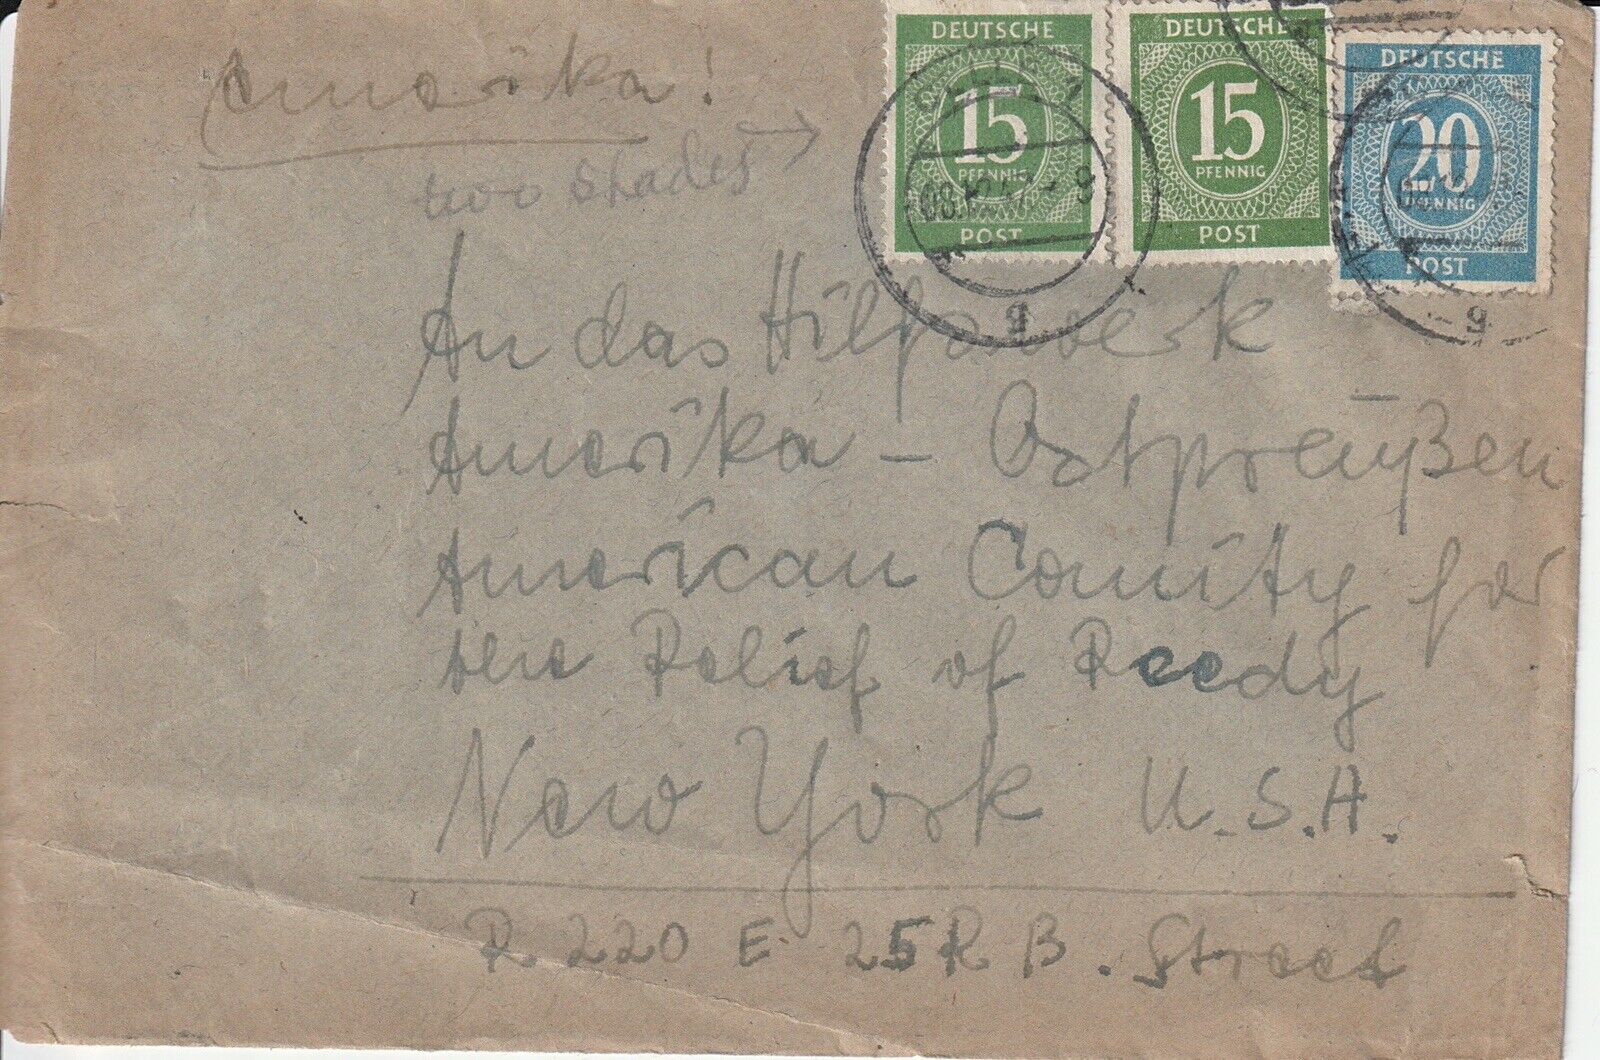 Amerika!
two shades →
DEUTSCHE
15
PFENNIG
POST
DEUTSCHE
15
PFENNIG
POST
DEUTSCHE
20
PFENNIG
POST
CELLE 1
08.12.47.-9
g
-9
g
An das Hilfswerk
Amerika - Ostpreußen
American Comity for
the Relief of Reedy
New York U.S.A.
R 220 E 25R B. Street